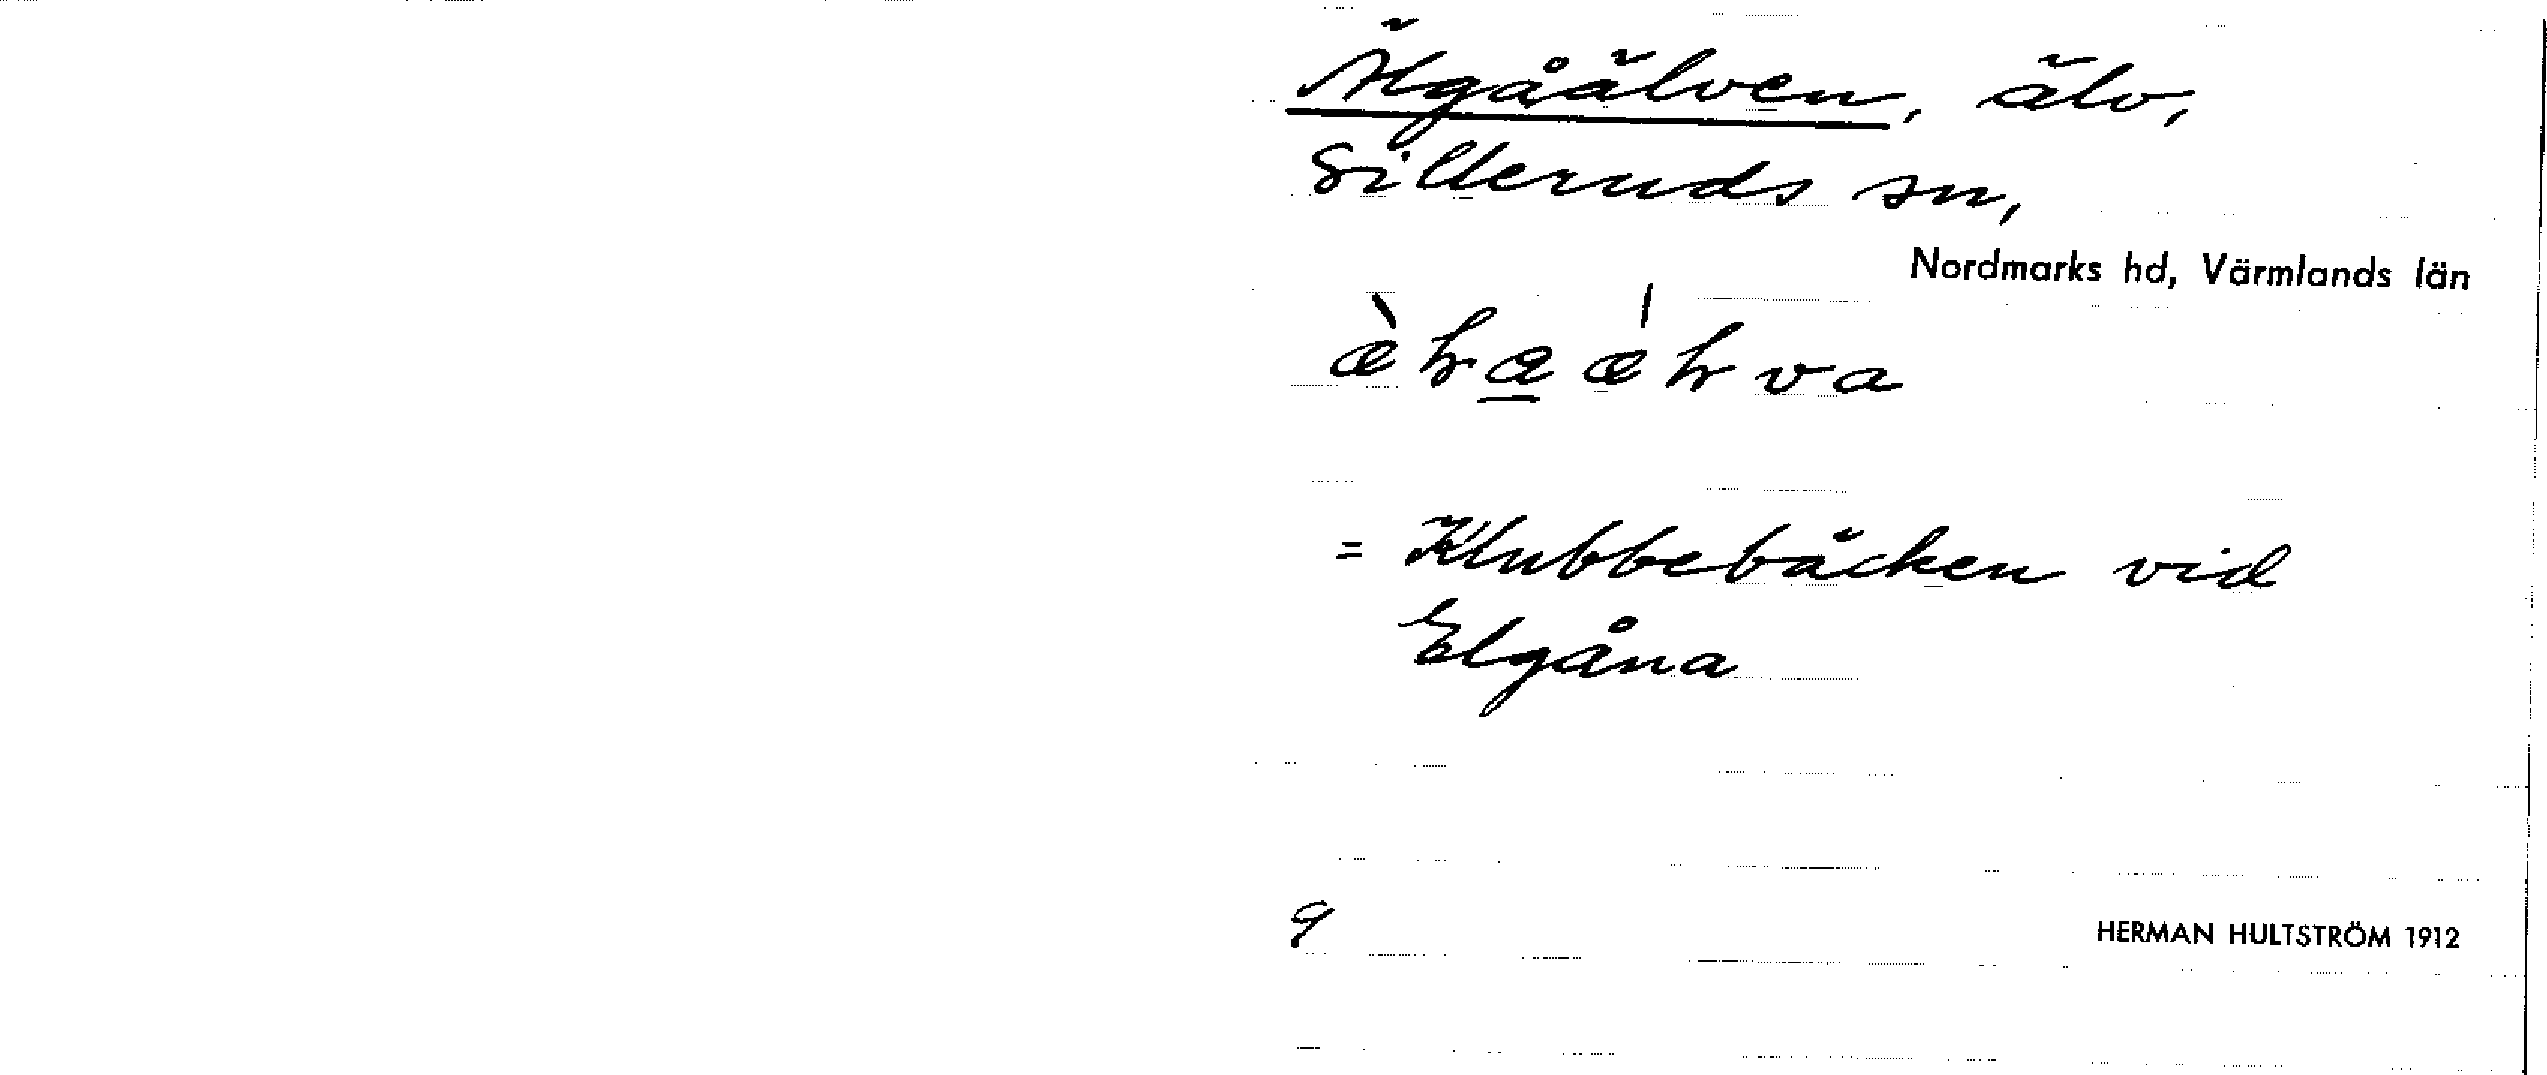 Älgåälven, älv,
Silleruds sn,
Nordmarks hd, Värmlands län
= Klubbebäcken vid
Elgåna
9
HERMAN HULTSTRÖM 1912